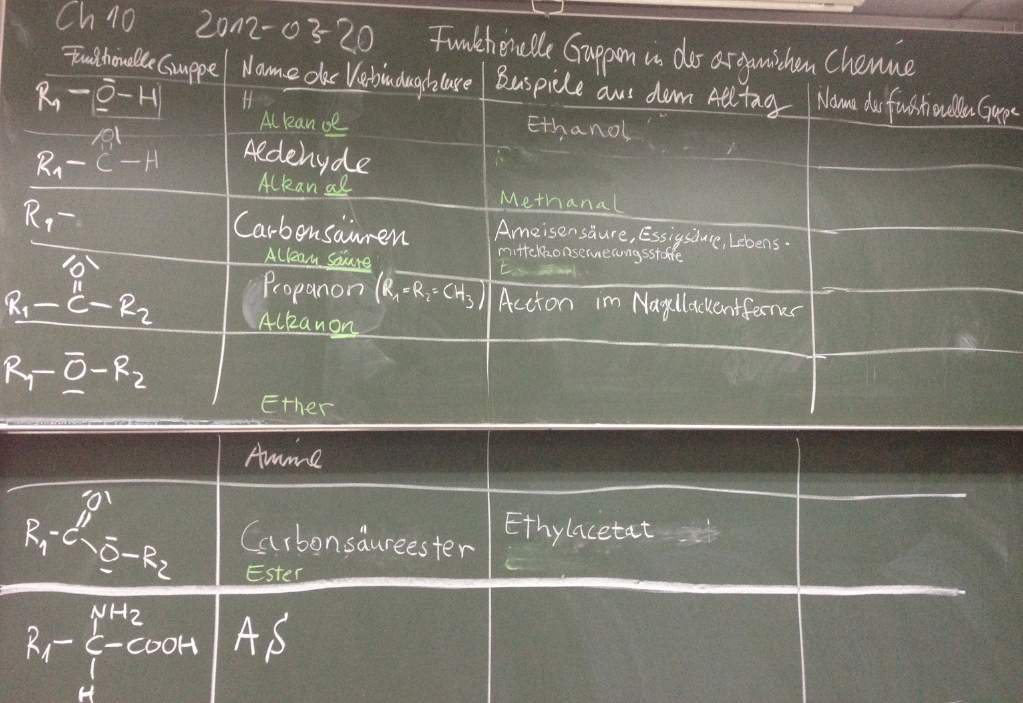 Ch 10 2012-03-20 Funktionelle Gruppen in der organischen Chemie
Funktionelle Gruppe Name der Verbindungsklasse Beispiele aus dem Alltag Name der funktionellen Gruppe
R₁ – O – H H
Alkanol Ethanol
O
R₁ – C – H Aldehyde
Alkanal Methanal
R₁ –
Carbonsäuren Ameisensäure, Essigsäure, Lebens-
mittelkonservierungsstoffe
Alkansäure E
O
R₁ – C – R₂ Propanon (R₁ = R₂ = CH₃) Aceton im Nagellackentferner
Alkanon
R₁ – O – R₂
Ether
Amine
O
R₁ – C Ethylacetat
O – R₂ Carbonsäureester
Ester
NH₂
R₁ – C – COOH AS
H